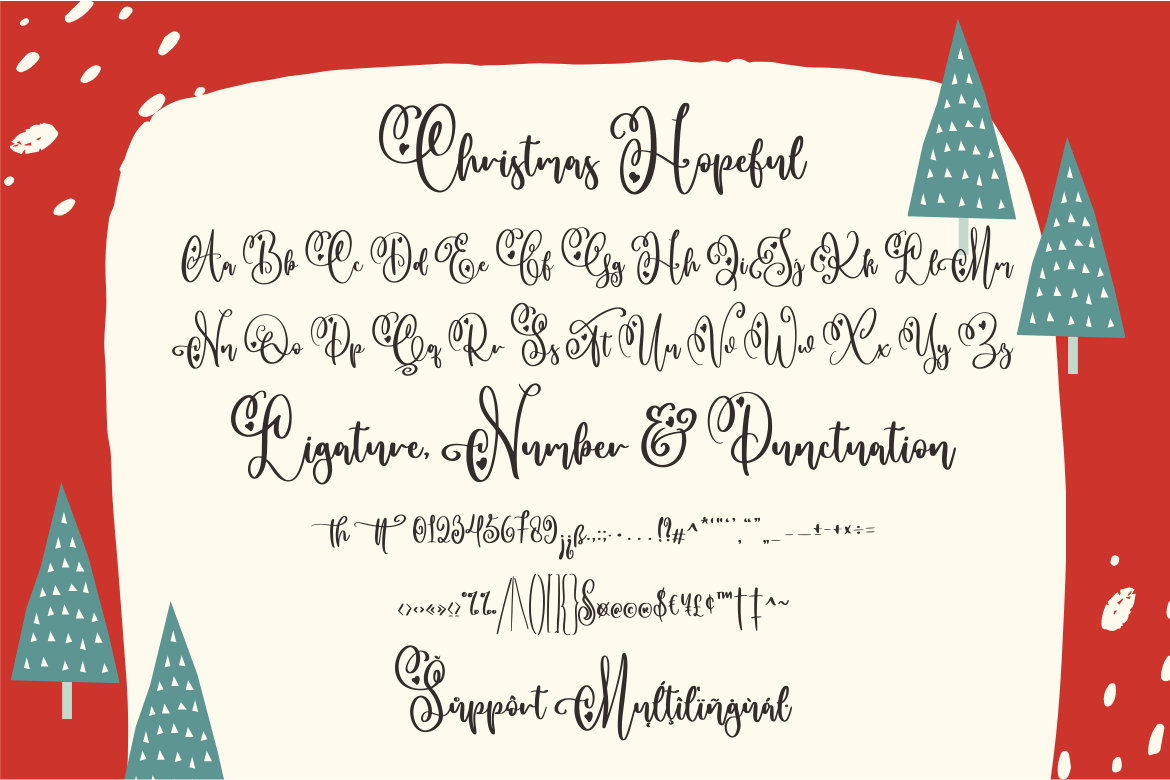 Christmas Hopeful
Aa Bb Cc Dd Ee Ff Gg Hh Ii Jj Kk Ll Mm
Nn Oo Pp Qq Rr Ss Tt Uu Vv Ww Xx Yy Zz
Ligature, Number & Punctuation
th tt 0123456789¡¿ß.,:;·•...!?#^*‘"“',“”‚„_-–—±−+×÷=
‹›‹›«»≤≥°%‰/\()[]{}§¤@©®$€¥£¢™†‡^~
Šůppôrt Mųļţîlïñġùál